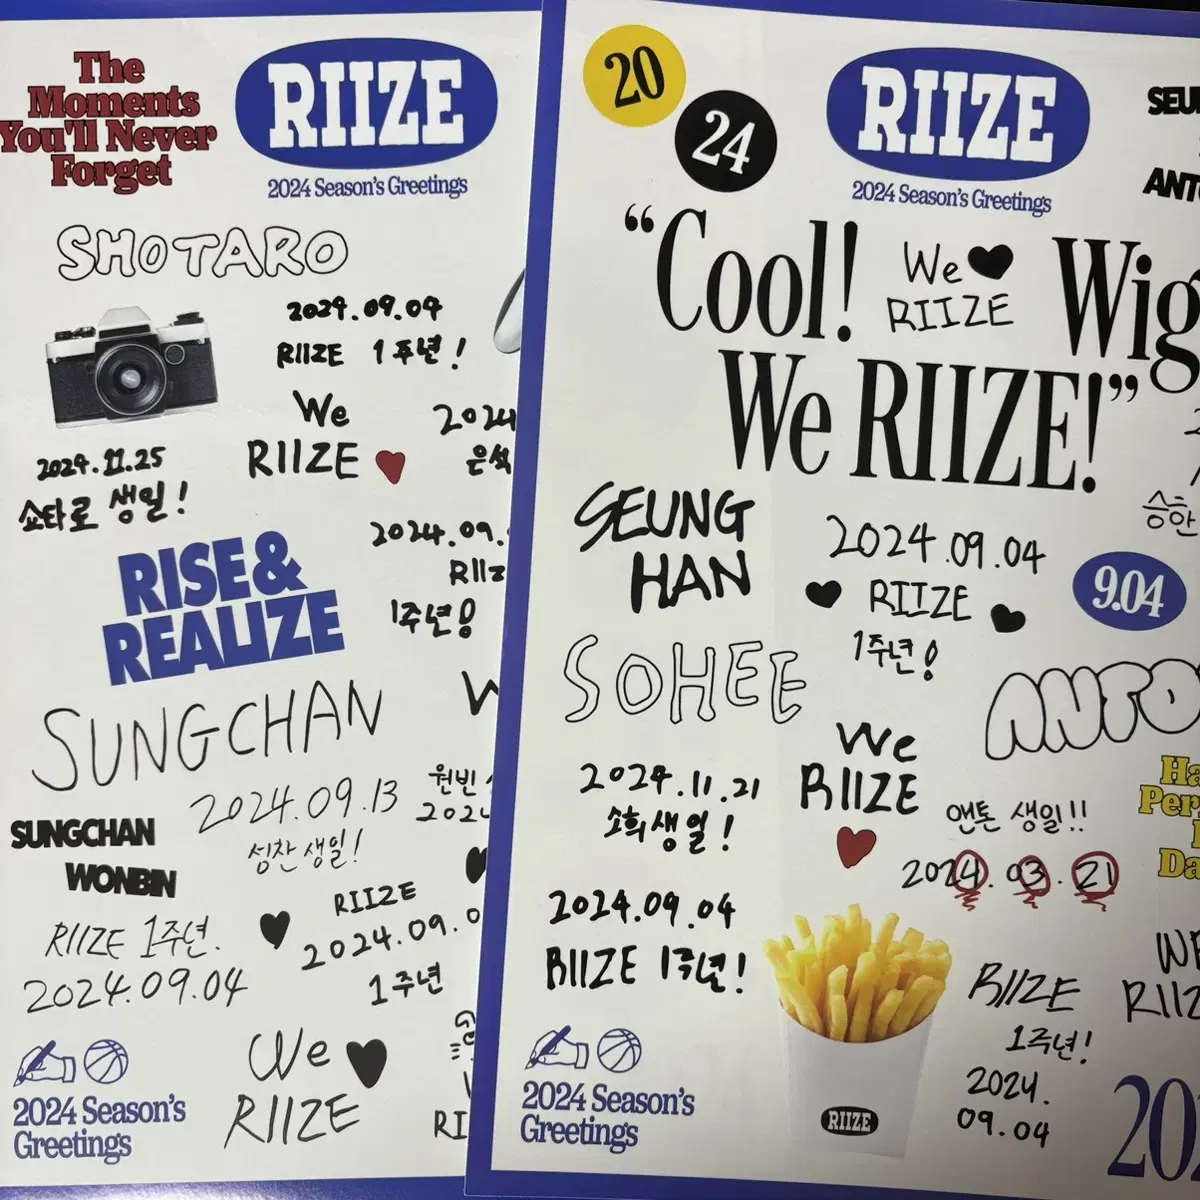 The
Moments
You'll Never
Forget
RIIZE
2024 Season's Greetings
SHOTARO
2024.09.04
RIIZE 1주년!
We
RIIZE
2024.11.25
쇼타로 생일!
2024
은석
RISE&
REALIZE
2024.09.
RIIZ
1주년!
SUNGCHAN
2024.09.13
성찬 생일!
원빈
202
SUNGCHAN
WONBIN
RIIZE 1주년.
2024.09.04
RIIZE
2024.09.0
1주년
We
RIIZE
RI
2024 Season's
Greetings
20
24
RIIZE
2024 Season's Greetings
SEU
ANTO
"Cool!
We
RIIZE
Wig
We RIIZE!"
승한
SEUNG
HAN
2024.09.04
RIIZE
1주년!
9.04
SOHEE
ANTO
We
RIIZE
2024.11.21
소희생일!
앤톤 생일!!
2024.03.21
Ha
Per
Da
2024.09.04
RIIZE 1주년!
RIIZE
RIIZE
1주년!
2024.
09.04
WE
RIIZ
2024 Season's
Greetings
20